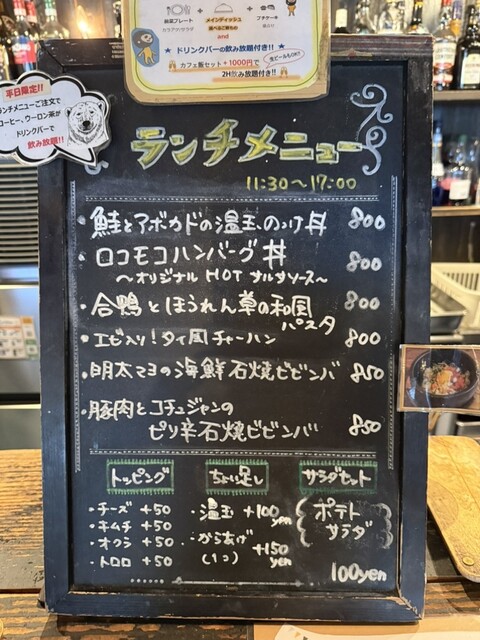 前菜プレート
メインディッシュ
プチケーキ
and
★ ドリンクバーの飲み放題付き!! ★
カフェ飯セット+1000円で
2H飲み放題付き!!
平日限定!!
ランチメニューご注文で
コーヒー、ウーロン茶が
ドリンクバーで
飲み放題!!
ランチメニュー
11:30〜17:00
・鮭とアボカドの温玉のっけ丼 800
・ロコモコハンバーグ丼 800
〜オリジナル HOT サルサソース〜
・合鴨とほうれん草の和風パスタ 800
・エビ入り!タイ風チャーハン 800
・明太マヨの海鮮石焼ビビンバ 850
・豚肉とコチュジャンの
ピリ辛石焼ビビンバ 850
トッピング
・チーズ +50
・キムチ +50
・オクラ +50
・トロロ +50
ちょい足し
・温玉 +100yen
・からあげ(1コ) +150yen
サラダセット
ポテト
サラダ
100yen